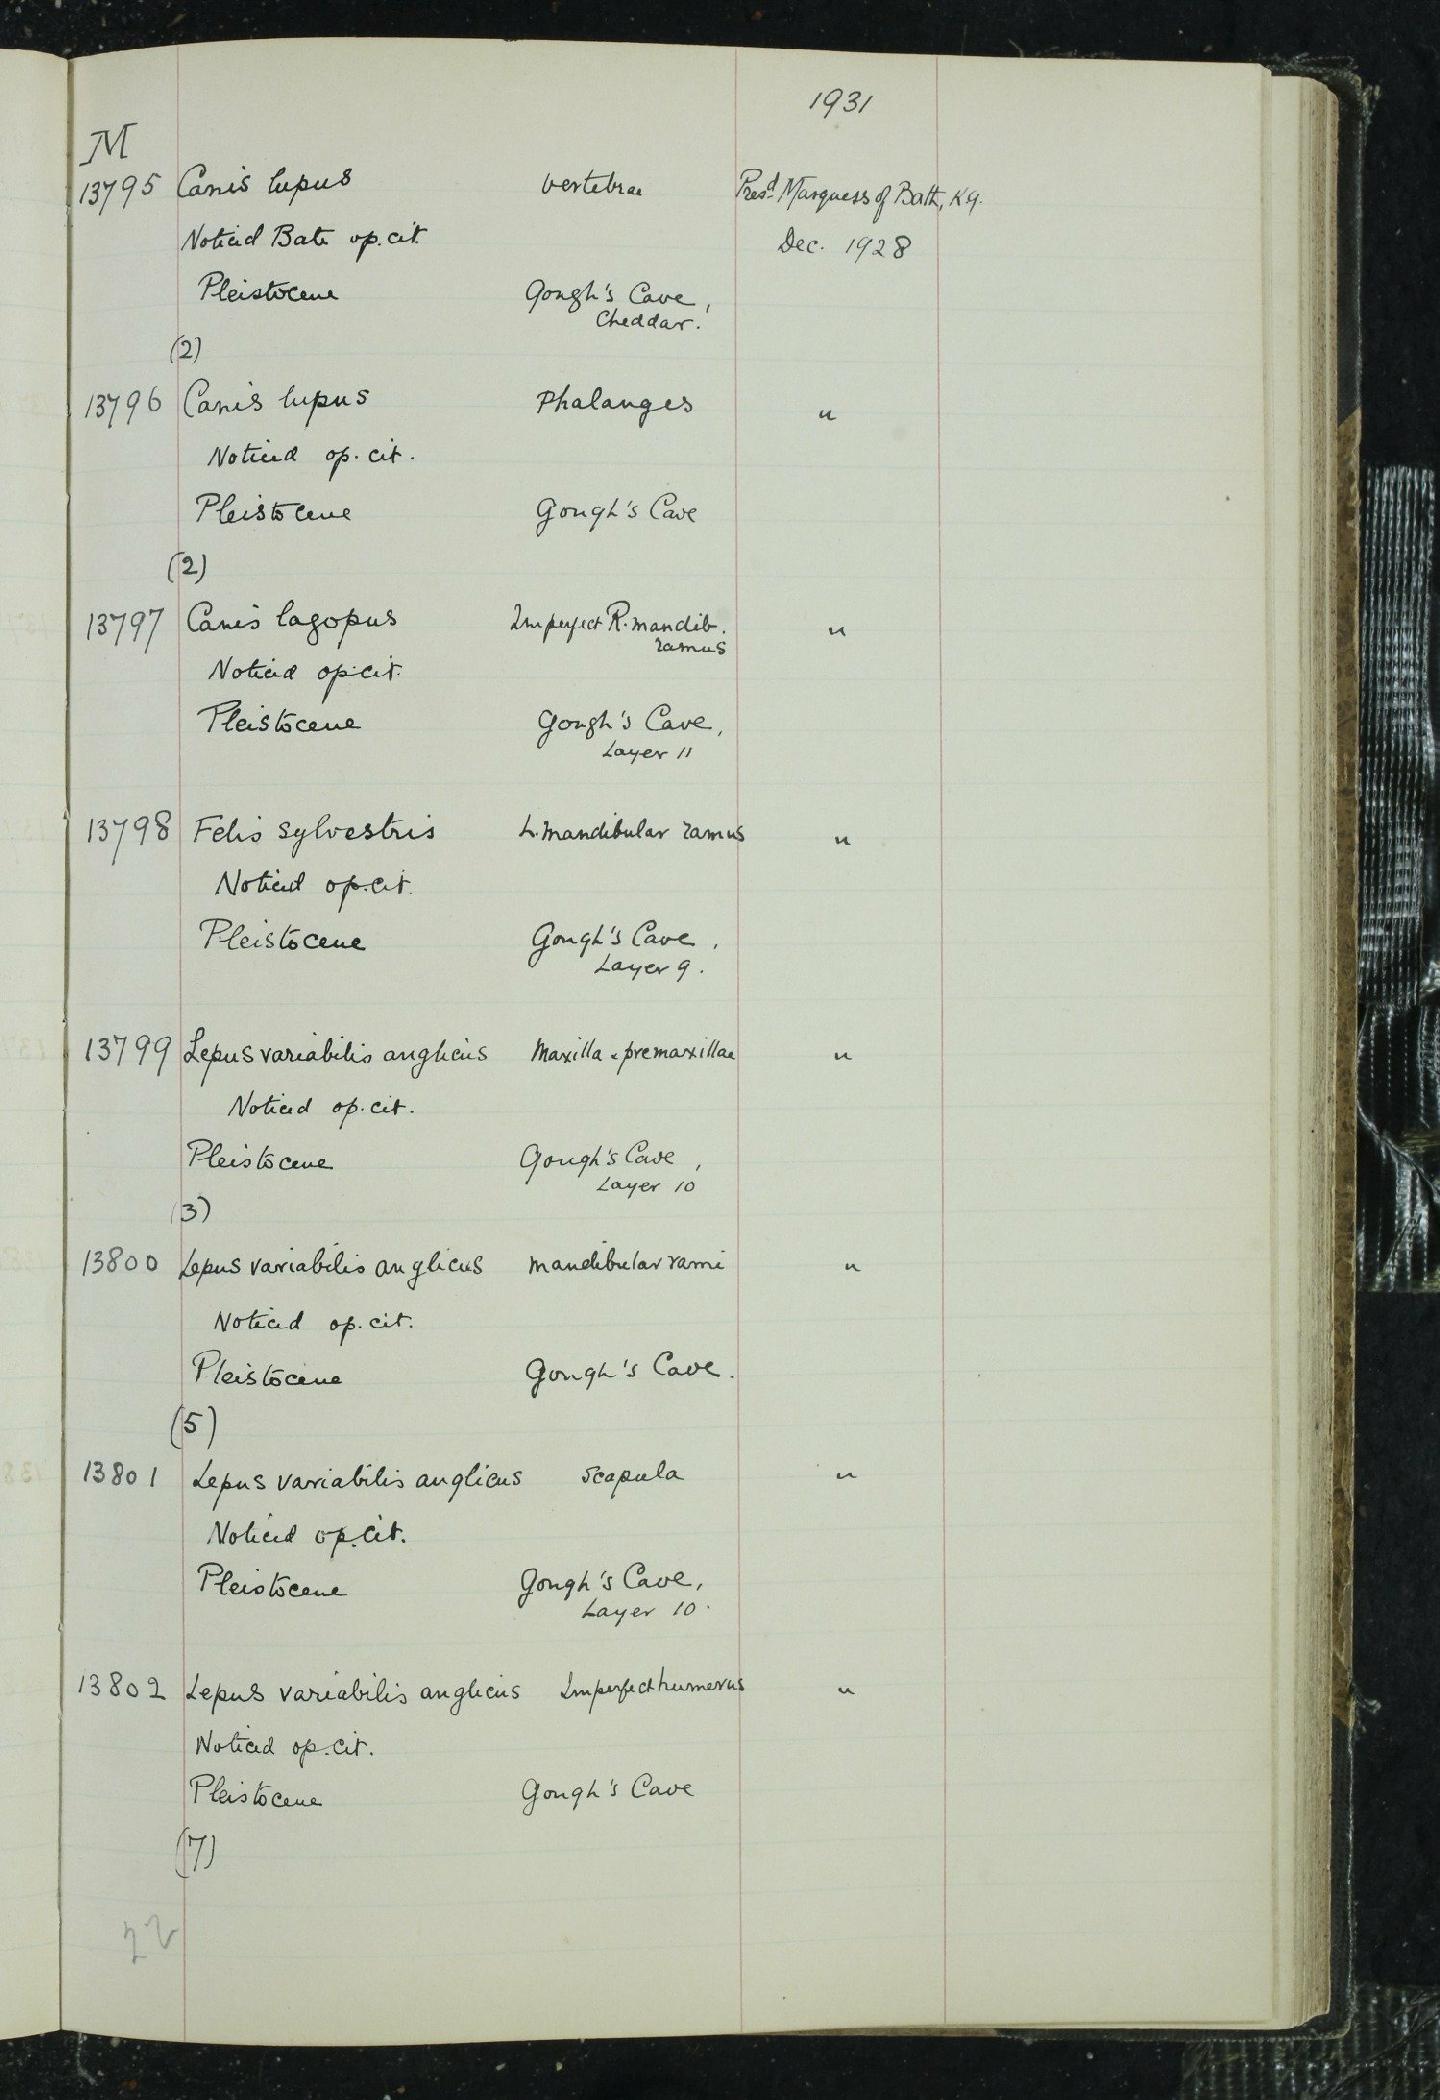 1931
M
13795 Canis lupus vertebrae Pres.d Marquess of Bath, KG.
Noticed Bate op. cit. Dec. 1928
Pleistocene Gough's Cave,
Cheddar.
(2)
13796 Canis lupus Phalanges "
Noticed op. cit.
Pleistocene Gough's Cave
(2)
13797 Canis lagopus Imperfect R. mandib. "
ramus
Noticed op. cit.
Pleistocene Gough's Cave,
Layer 11
13798 Felis sylvestris L. mandibular ramus "
Noticed op. cit.
Pleistocene Gough's Cave,
Layer 9.
13799 Lepus variabilis anglicus Maxilla & premaxillae "
Noticed op. cit.
Pleistocene Gough's Cave,
Layer 10
(3)
13800 Lepus variabilis anglicus mandibular rami "
Noticed op. cit.
Pleistocene Gough's Cave.
(5)
13801 Lepus variabilis anglicus scapula "
Noticed op. cit.
Pleistocene Gough's Cave,
Layer 10.
13802 Lepus variabilis anglicus Imperfect humerus "
Noticed op. cit.
Pleistocene Gough's Cave
(7)
22